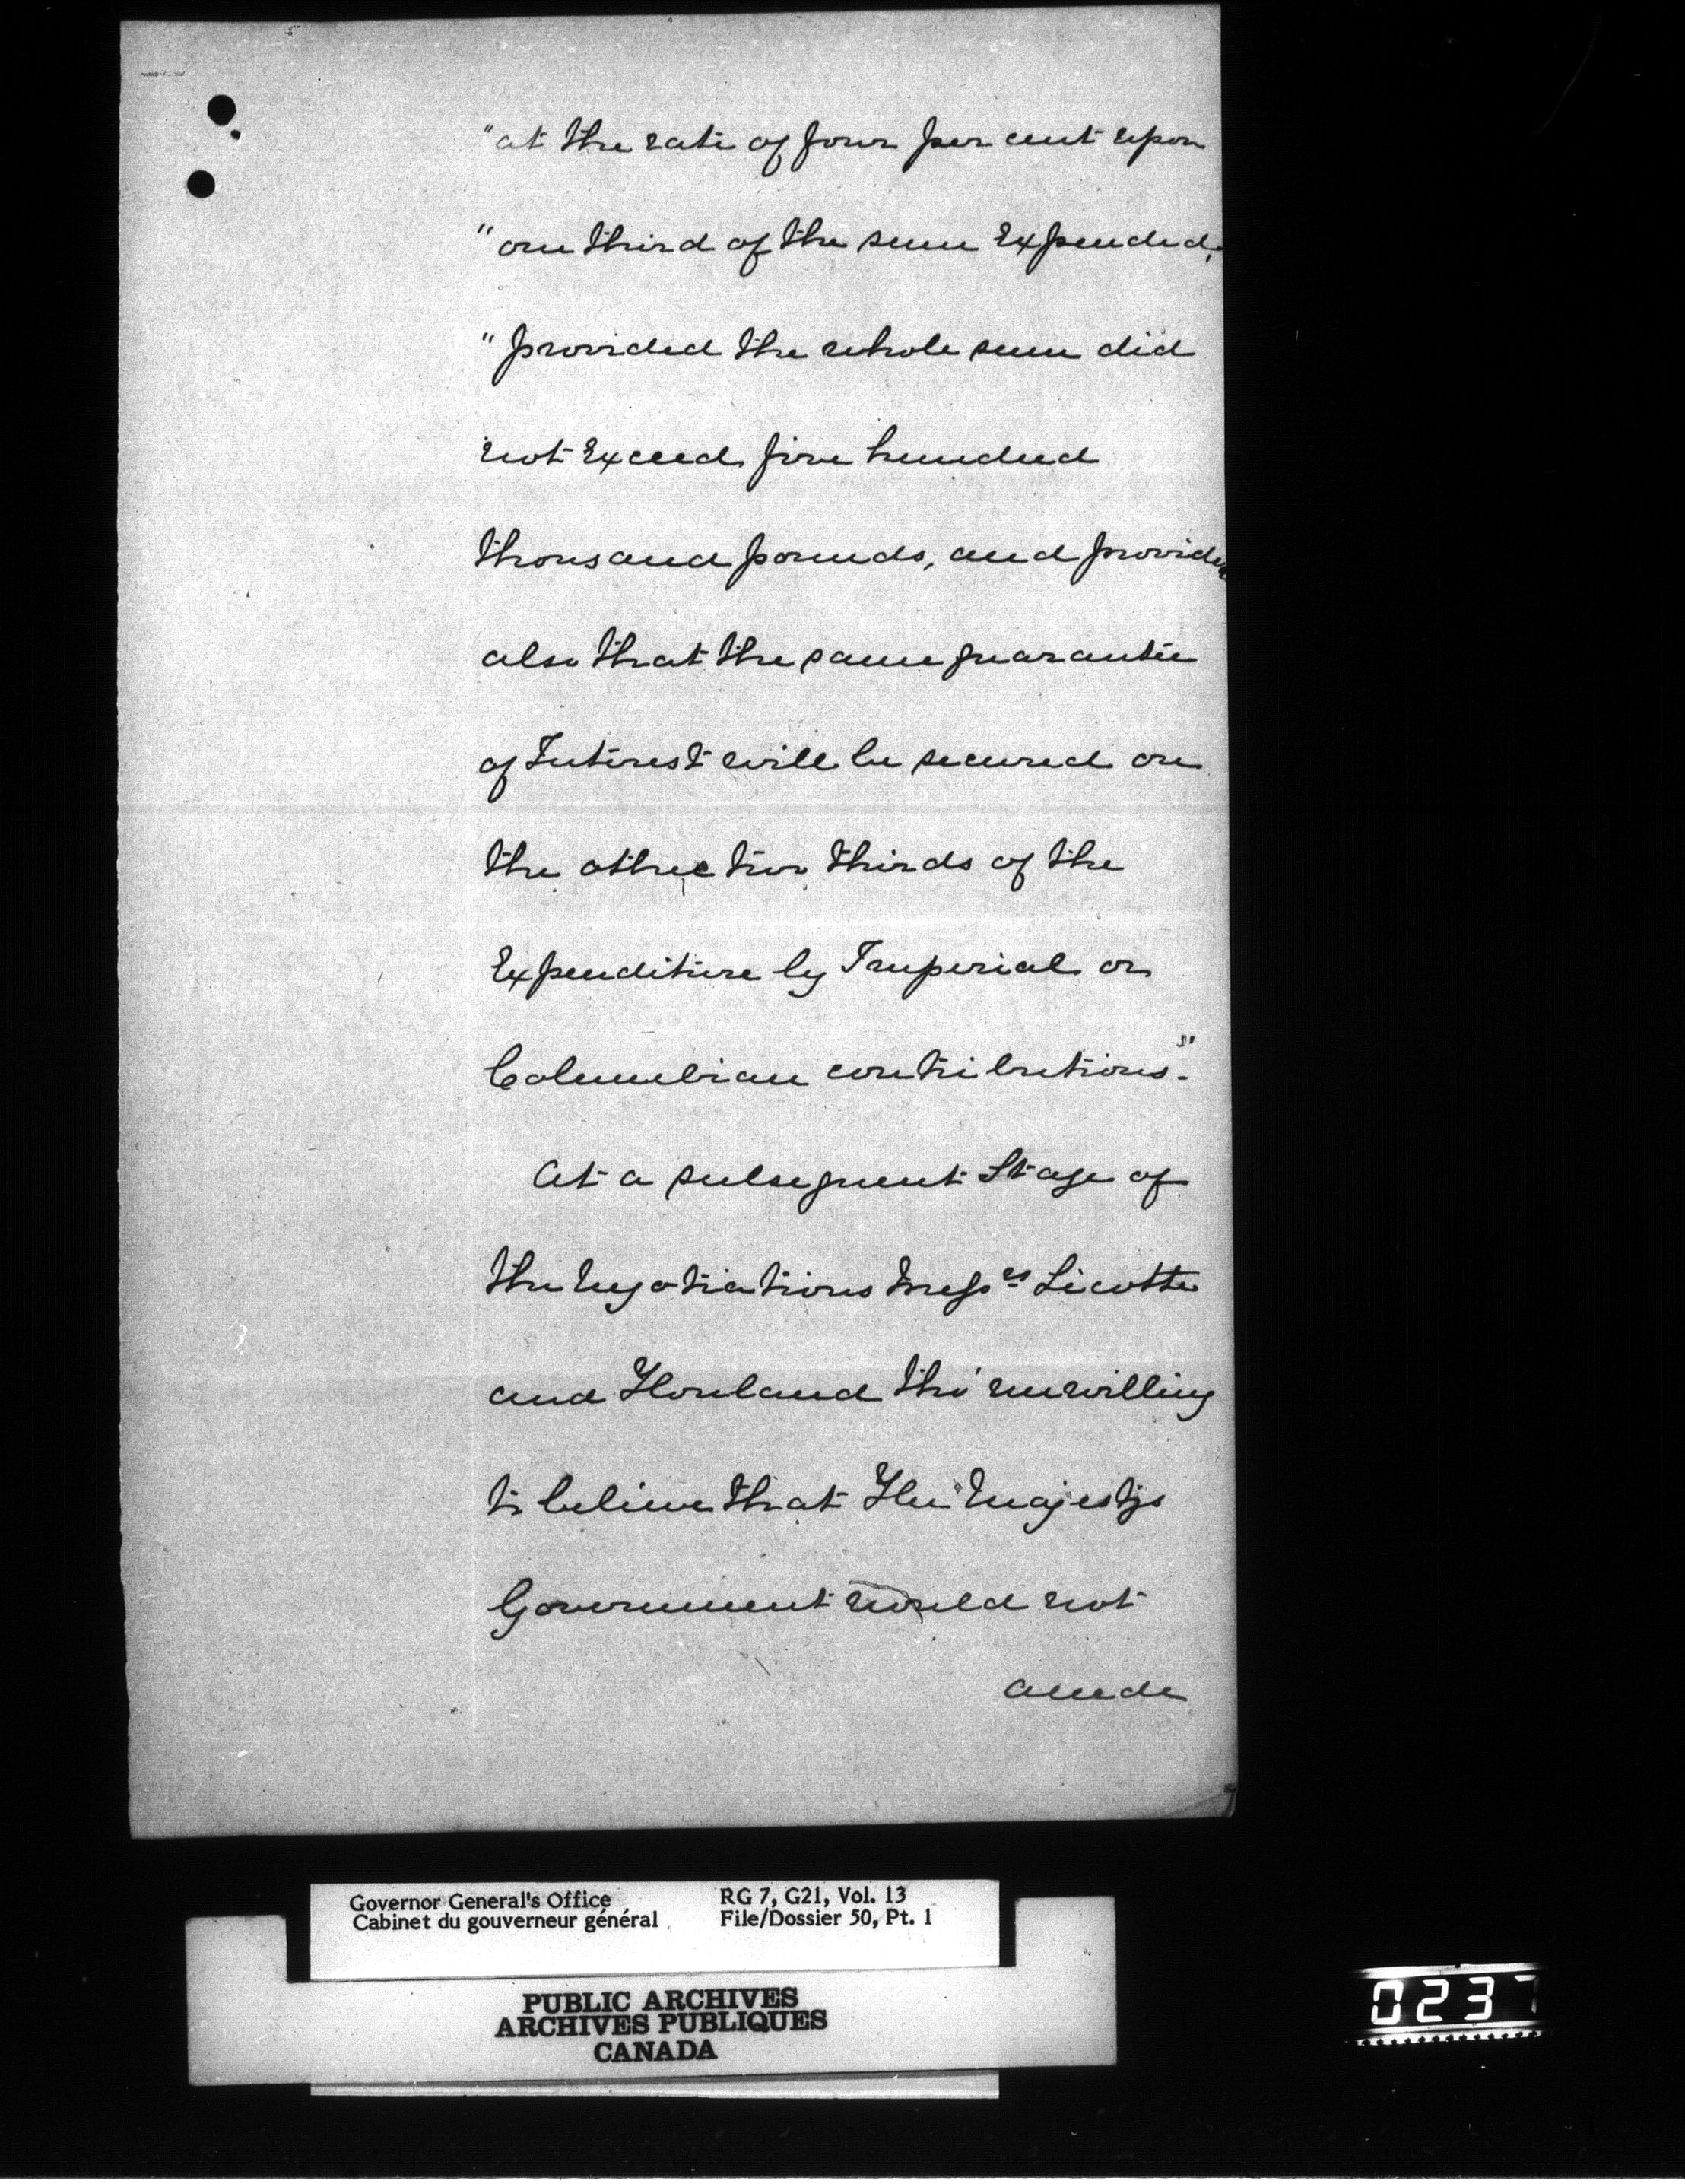 "at the rate of four per cent upon
"one third of the sum expended,
"provided the whole sum did
not exceed five hundred
thousand pounds, and provided
also that the same guarantee
of Interest will be secured on
the other two thirds of the
Expenditure by Imperial or
Columbian contributions."
At a subsequent Stage of
the negotiations Messrs Sicotte
and Howland tho' unwilling
to believe that Her Majestys
Government would not
accede
Governor General's Office
Cabinet du gouverneur général
RG 7, G21, Vol. 13
File/Dossier 50, Pt. 1
PUBLIC ARCHIVES
ARCHIVES PUBLIQUES
CANADA
0237